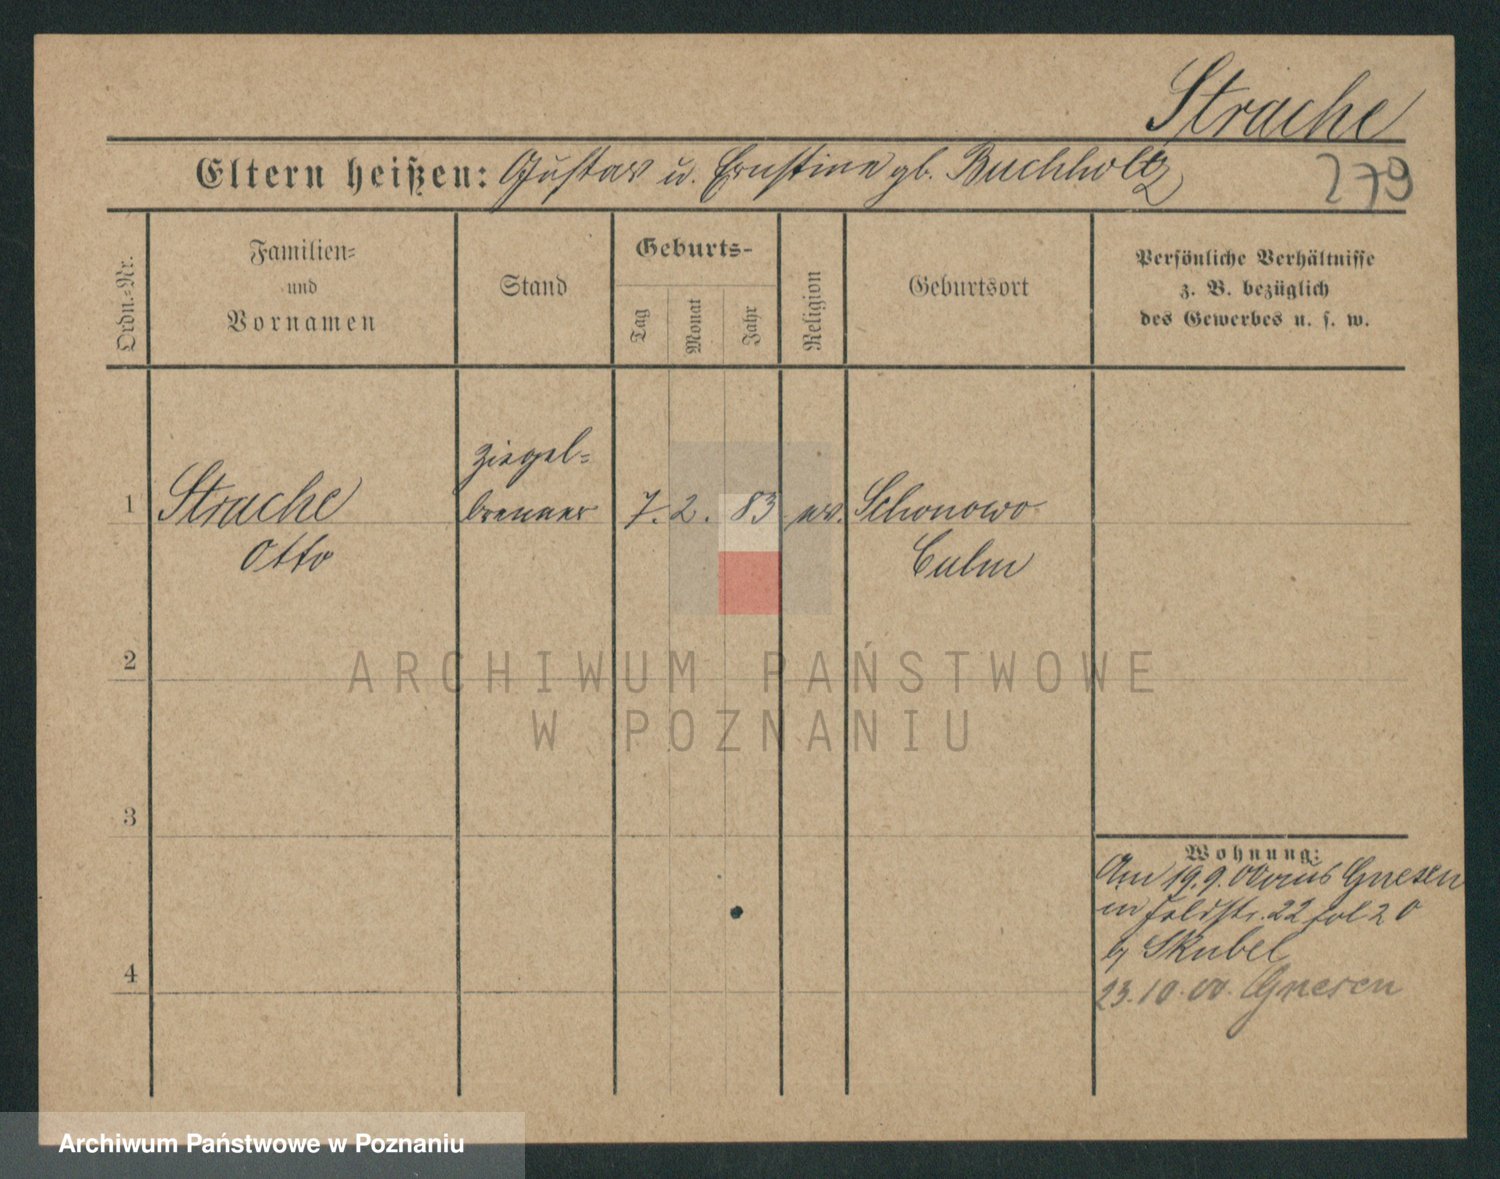 Strache
Eltern heißen: Gustav u. Ernstine gb. Buchholtz
279
Ordn.-Nr.
Familien-
und
Vornamen
Stand
Geburts-
Tag
Monat
Jahr
Religion
Geburtsort
Persönliche Verhältnisse
z. B. bezüglich
des Gewerbes u. s. w.
Ziegel-
1 Strache brenner 7. 2. 83 ev. Schonowo
Otto Culm
2
ARCHIWUM PAŃSTWOWE
W POZNANIU
3
Wohnung:
Am 19.9.00 aus Gnesen
in Feldstr. 22
b/ Skubel
4
23.10.00. Gnesen
Archiwum Państwowe w Poznaniu